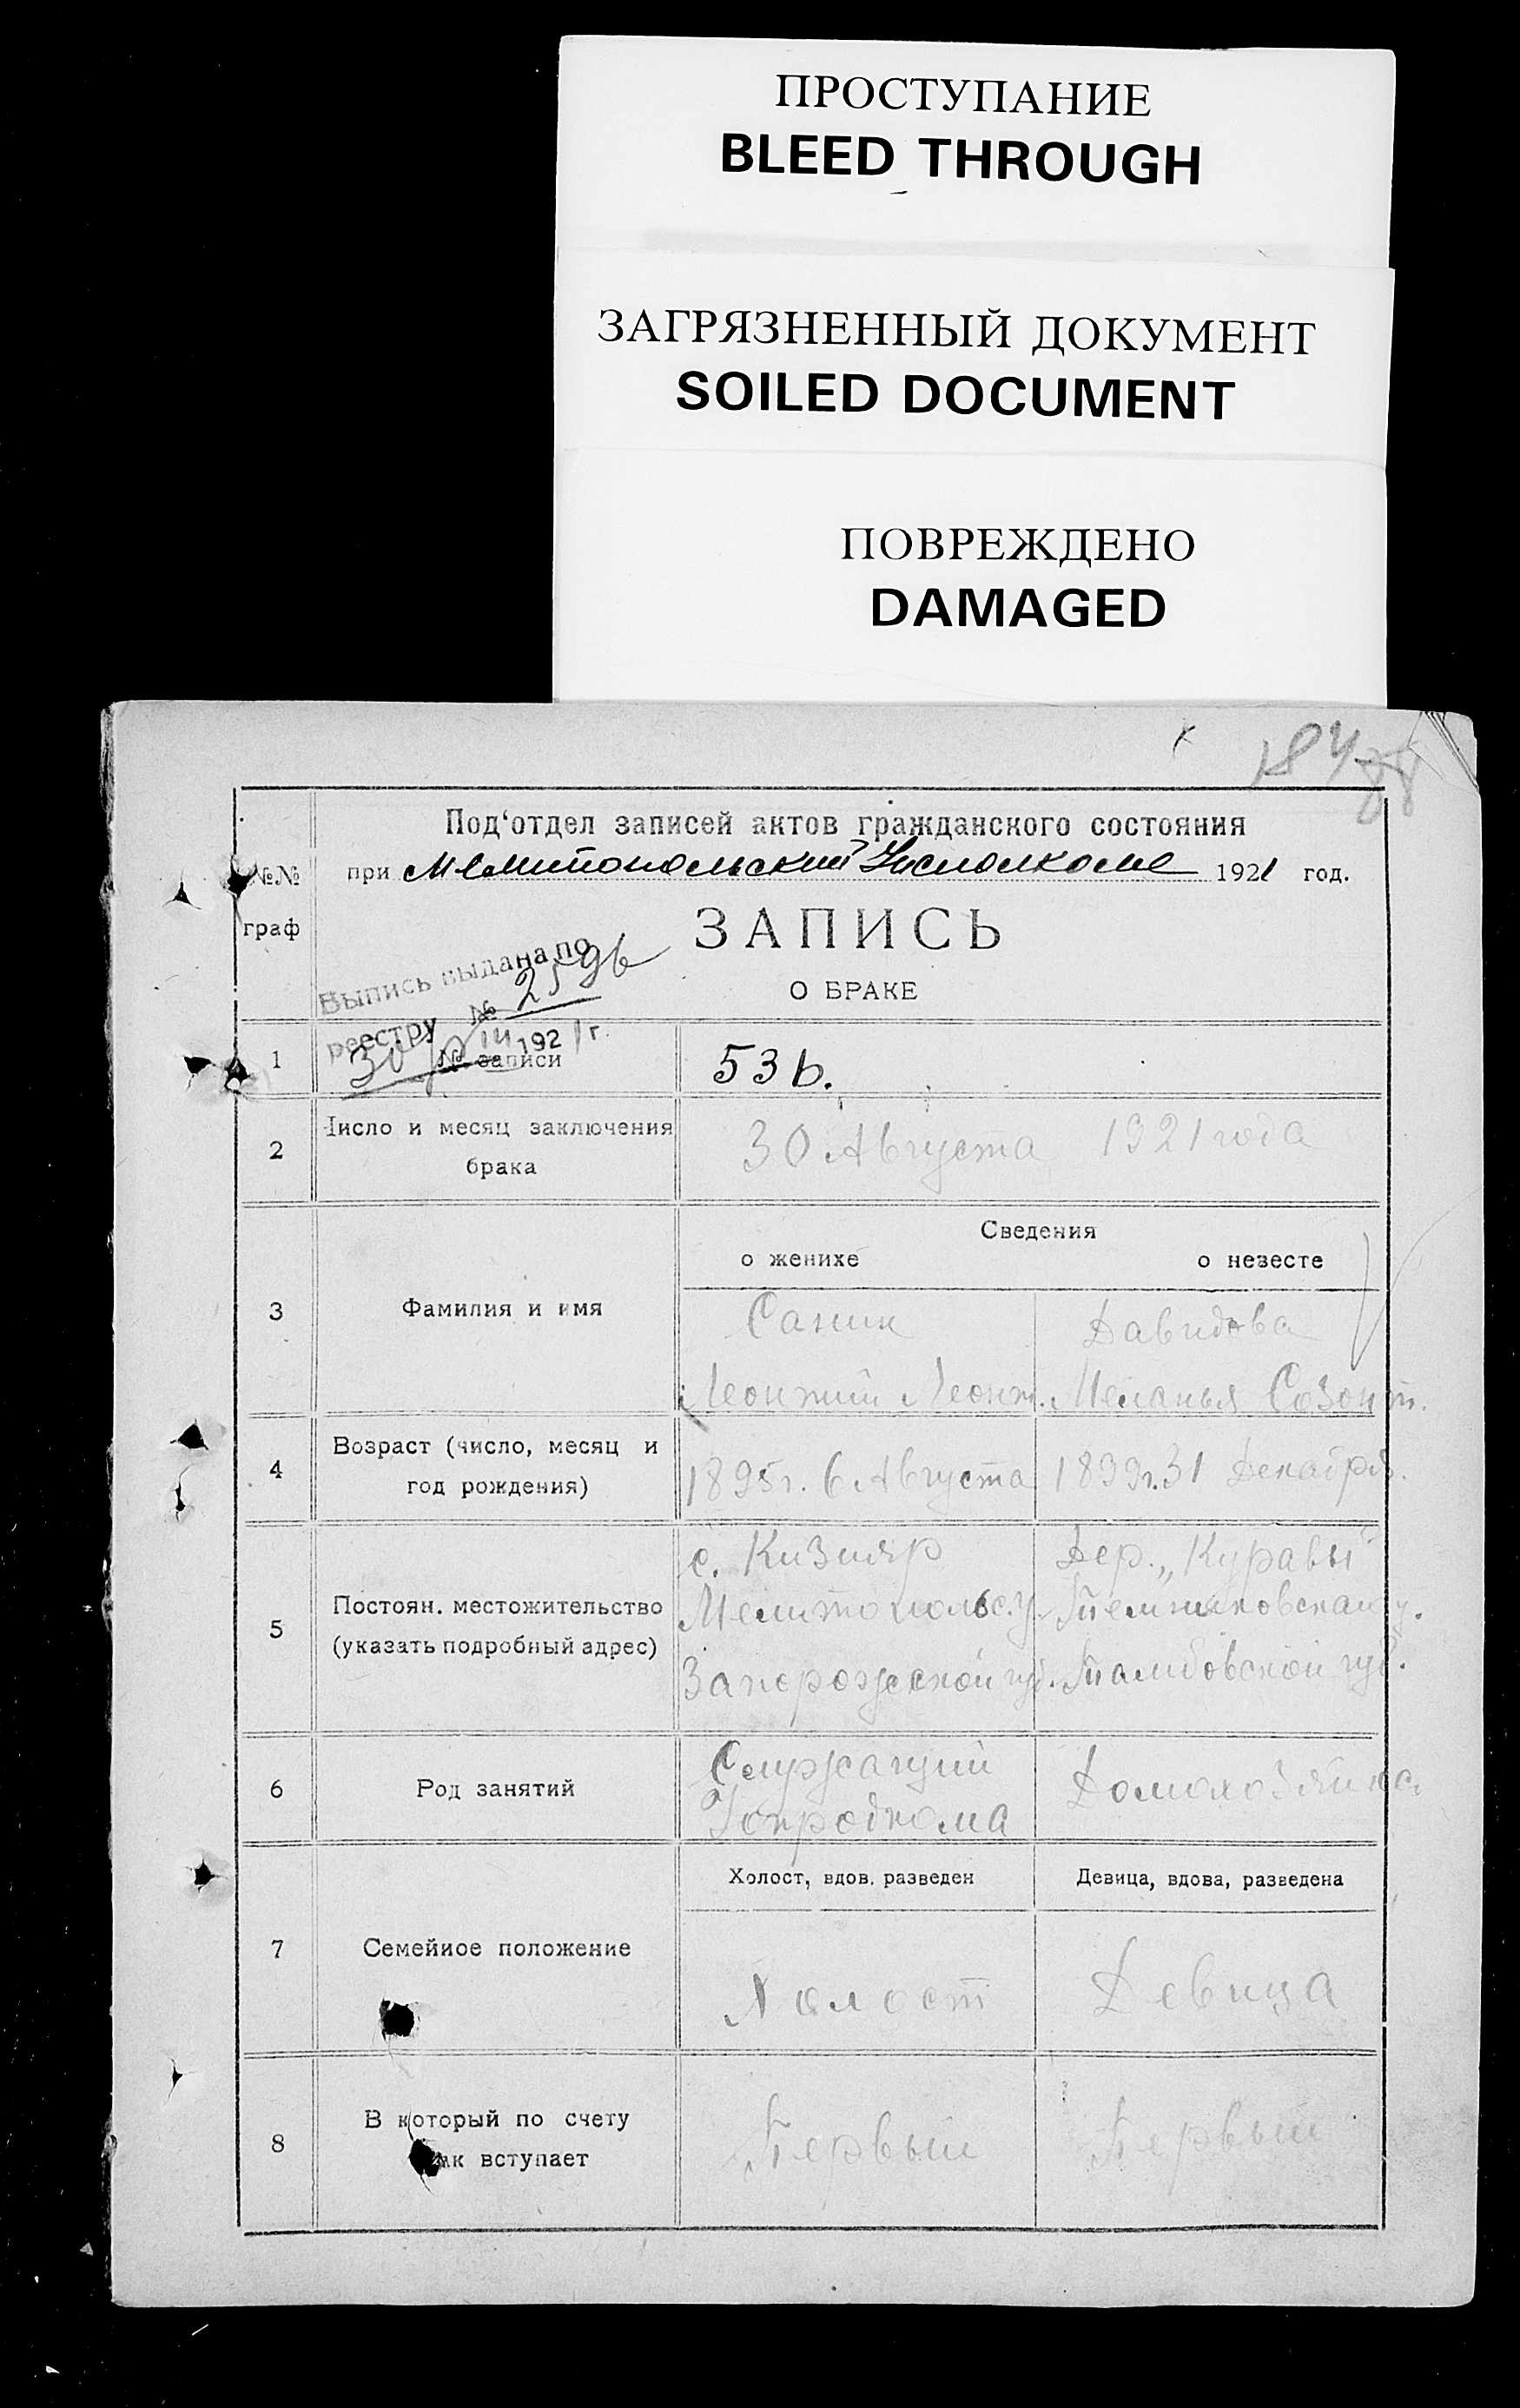 ПРОСТУПАНИЕ
BLEED THROUGH
ЗАГРЯЗНЕННЫЙ ДОКУМЕНТ
SOILED DOCUMENT
ПОВРЕЖДЕНО
DAMAGED
184
Под'отдел записей актов гражданского состояния
№№ граф
при Мелитопольский Уисполкоме 1921 год.
ЗАПИСЬ
О БРАКЕ
Выпись выдана по
реестру № 2596
1921 г.
1 № записи 536.
2 Число и месяц заключения брака
30 Августа 1921 года
Сведения
о женихе о невесте
3 Фамилия и имя
Саник Давидова
Леонтий Леонт. Меланья Созонт.
4 Возраст (число, месяц и год рождения)
1895 г. 6 Августа 1899 г. 31 Декабря.
5 Постоян. местожительство (указать подробный адрес)
с. Кизияр Дер. „Куравы"
Мелитопольс. у. Темниковскаи у.
Запорожской губ. Тамбовской губ.
6 Род занятий
Служащий Домохозяйка
Упродкома
Холост, вдов. разведен Девица, вдова, разведена
7 Семейное положение
Холост Девица
8 В который по счету вступает
Первый Первый